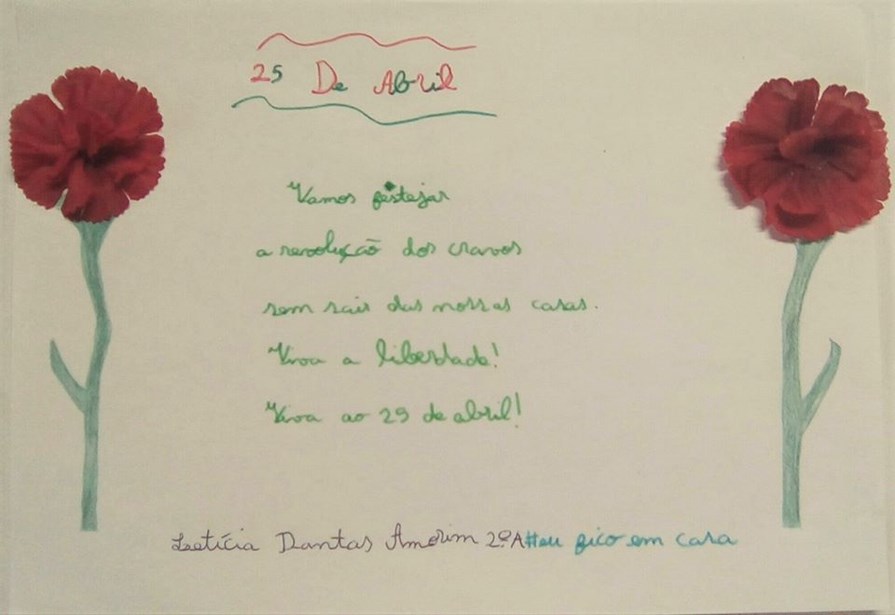 25 De Abril
Vamos festejar
a revolução dos cravos
sem sair das nossas casas.
Viva a liberdade!
Viva ao 25 de abril!
Letícia Dantas Amorim 2ºA #eu fico em casa